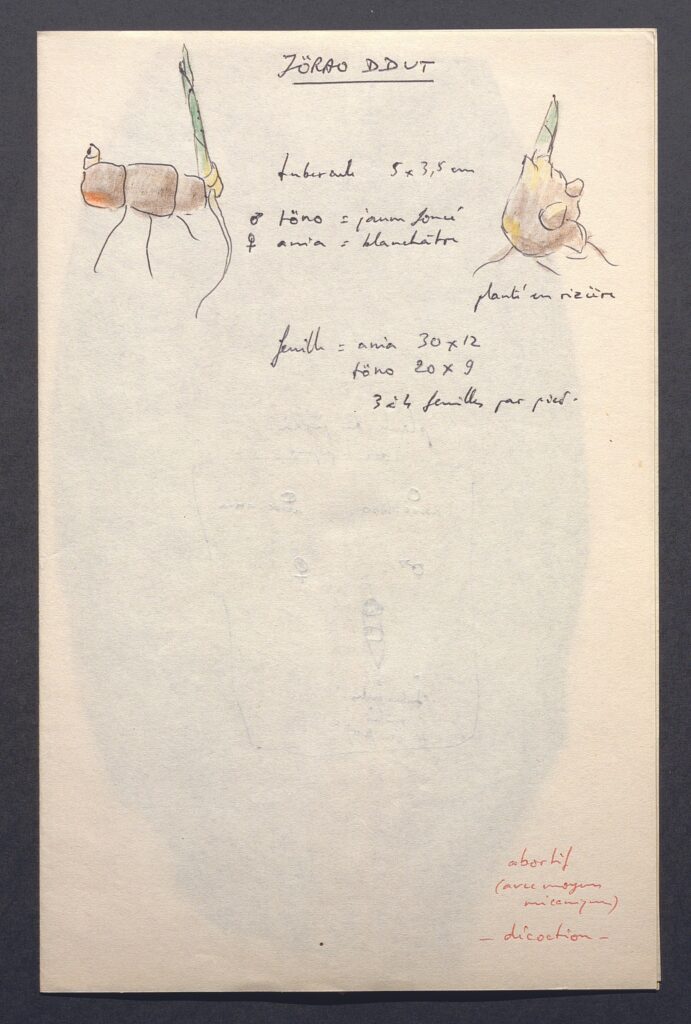 JÖRAO DDUT
tubercule 5 x 3,5 cm
♂ töno = jaune foncé
♀ ania = blanchâtre
planté en rizière
feuille = ania 30 x 12
töno 20 x 9
3 à 4 feuilles par pied.
abortif
(avec moyens
mécaniques)
- décoction -